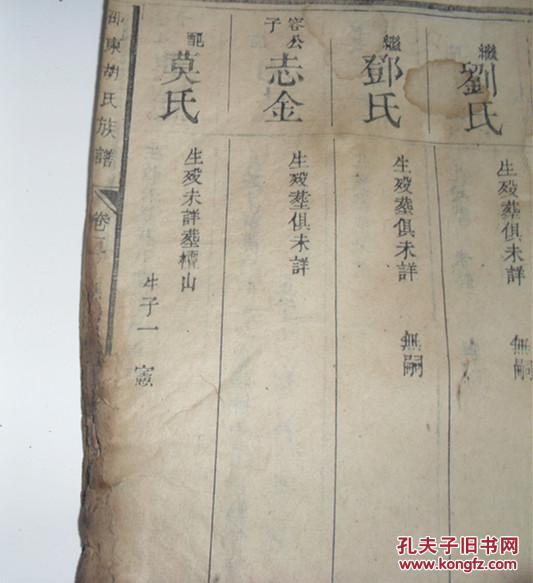 繼劉氏
生歿塟俱未詳 無嗣
繼鄧氏
生歿塟俱未詳 無嗣
容公子志金
生歿塟俱未詳
配莫氏
生歿未詳塟檀山 生子一 憲
東胡氏族譜 卷
孔夫子旧书网
www.kongfz.com